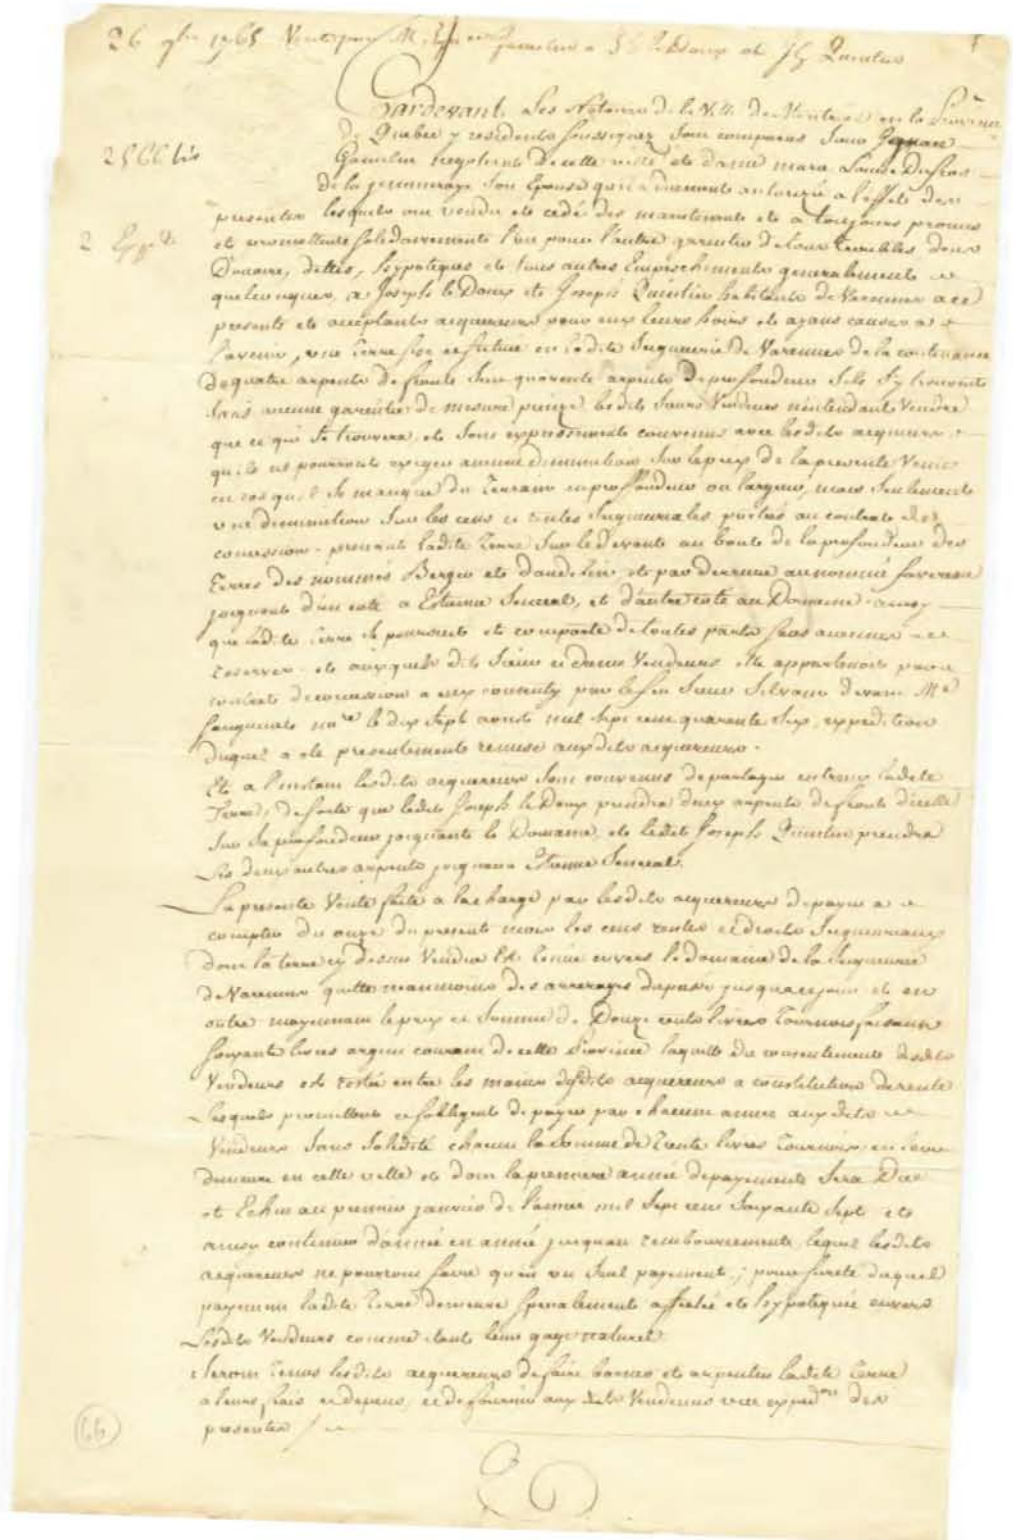 26 9bre 1765 Vente par M. Gamelin a Jh leDoux et Jh Quintin
Pardevant Les Notaires de la Ville de Montreal en la Province
de Quebec y residents soussignez sont comparus Sieur Ignace
Gamelin negotiant de cette ville et dame marie Louise Dufros
de la jemmeraye son Epouse qu'il a duement autorizée a l'effet des
presentes lesquels ont vendu et cedé des maintenant et a toujours promis
et promettent solidairement l'un pour l'autre garantir de tous troubles dons
Douaire, dettes, hypoteques et tous autres Empeschements generalement
quelconques, a Joseph le Doux et Joseph Quintin habitants de Varennes a ce
presents et acceptants acquereurs pour eux leurs hoirs et ayans causes a
l'avenir, une terre size et scituée en ladite Seigneurie de Varennes de la contenance
de quatre arpents de front sur quarante arpents de profondeur s'ils s'y trouvent
sans aucune garentie de mesure precize lesdits Sieurs Vendeurs n'entendant Vendre
que ce qui se trouvera, et sont expressement convenus avec lesdits acquereurs
qu'ils ne pourront exiger aucune diminution sur le prix de la presente Vente
en cas qu'il se manque du terrain en profondeur ou largeur, mais seulement
une diminution sur les cens et rentes Seigneuriales portés au contrat de
concession. prenant ladite terre sur le Devant au bout de la profondeur des
terres des nommés Berger et dandelin et par derriere au nommé favereau
joignant d'un coté a Estienne Senecal, et d'autre coté au Domaine ainsy
que ladite terre se poursuit et comporte de toutes parts sans aucunes
reserves et auxquels dits Sieur et dame Vendeurs elle appartenoit par
contrat de concession a eux consenty par le feu Sieur Silvain devant Me
Sanguinet nore le dix sept aoust mil sept cent quarante six, expedition
duquel a eté presentement remise auxdits acquereurs.
Et a l'instant lesdits acquereurs sont convenus de partager entreux ladite
Terre, de sorte que ledit Joseph le Doux prendra deux arpents de front d'icelle
sur la profondeur joignant le Domaine, et ledit Joseph Quintin prendra
les deux autres arpents joignant Etienne Senecal.
La presente Vente faite a la charge par lesdits acquereurs de payer a
compter du onze du present mois les cens rentes et droits Seigneuriaux
dont la terre cy dessus Vendue Est tenüe envers le domaine de la Seigneurie
de Varennes quitte neanmoins des arrerages du passé jusqu'a ce jour et en
outre moyennant le prix et somme de Douze cents livres Tournois faisant
soixante livres argent courant de cette Province laquelle du consentement desdits
Vendeurs est restée entre les mains desdits acquereurs a constitution de rente
lesquels promettent et s'obligent de payer par chacun année auxdits
Vendeurs sans solidité chacun la somme de trente livres Tournois en leur
demeure en cette ville et dont la premiere année de payement sera Due
et Echue au premier janvier de l'année mil sept cent soixante sept et
ainsy continuer d'année en année jusqu'au remboursement, lequel lesdits
acquereurs ne pourront faire qu'en un seul payement; pour sureté duquel
payement ladite terre demeure specialement affectée et hypotequée envers
lesdits Vendeurs comme etant leur gage naturel
Seront tenus lesdits acquereurs de faire borner et arpenter ladite terre
a leurs frais et depens, et de fournir auxdits Vendeurs une exped.on des
presentes
66